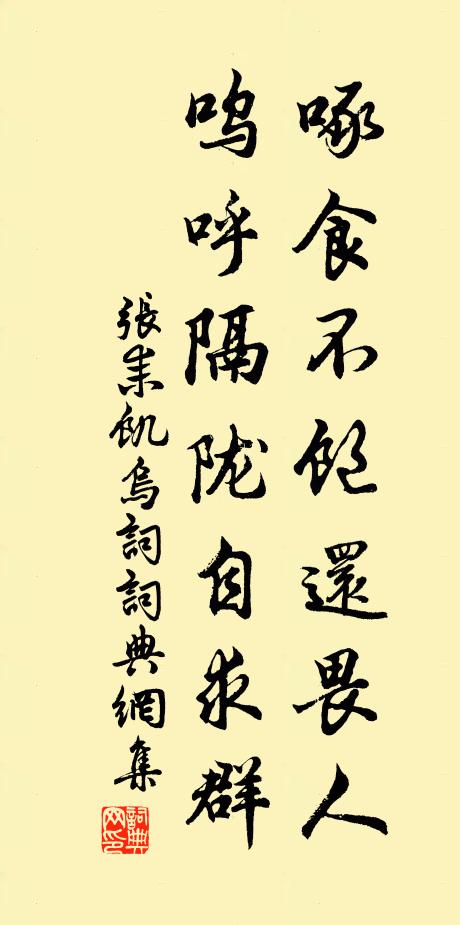 啄食不飽還畏人
嗚呼隔陇自求群
張耒飢烏詞詞典網集
詞典網印